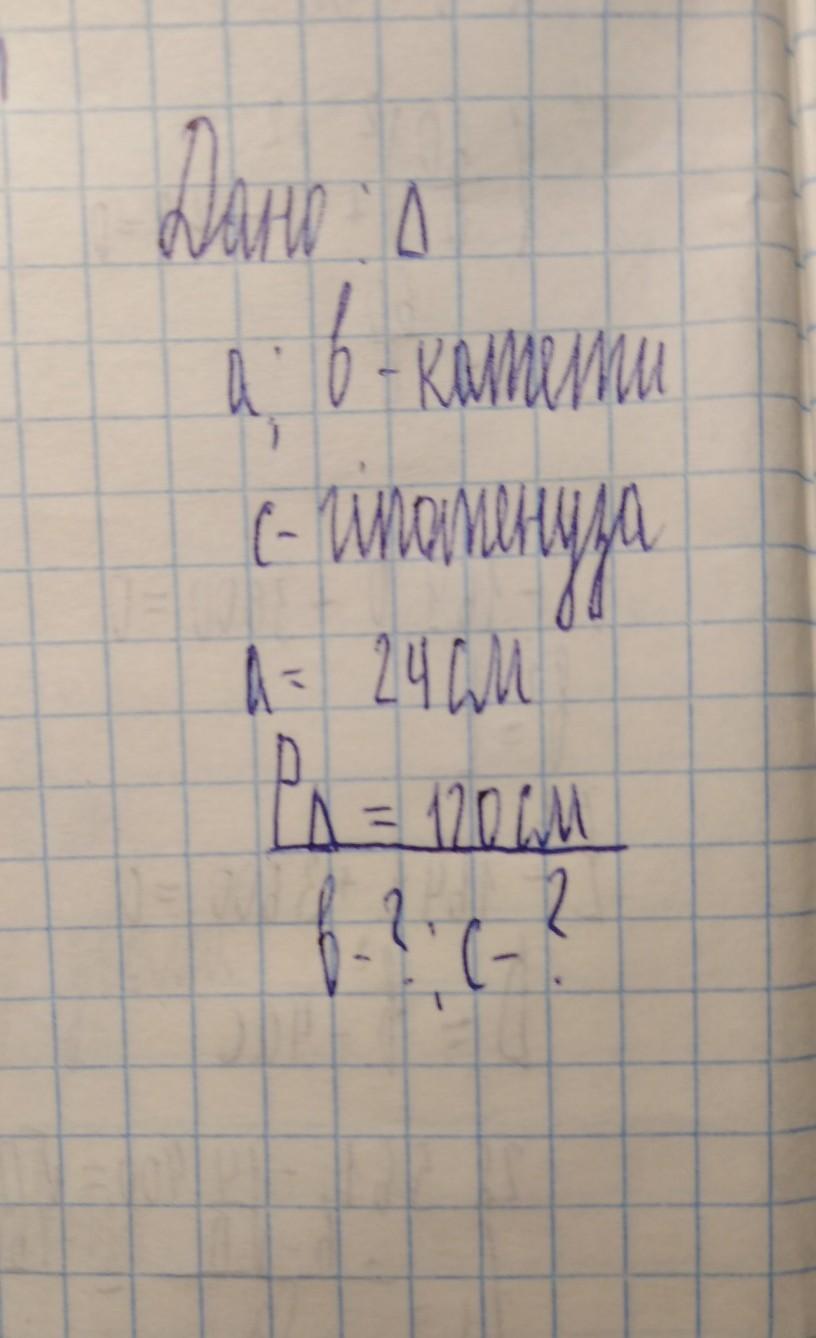 Дано: Δ
a; b - катети
c - гіпотенуза
a = 24 см
PΔ = 120 см
b - ?; c - ?